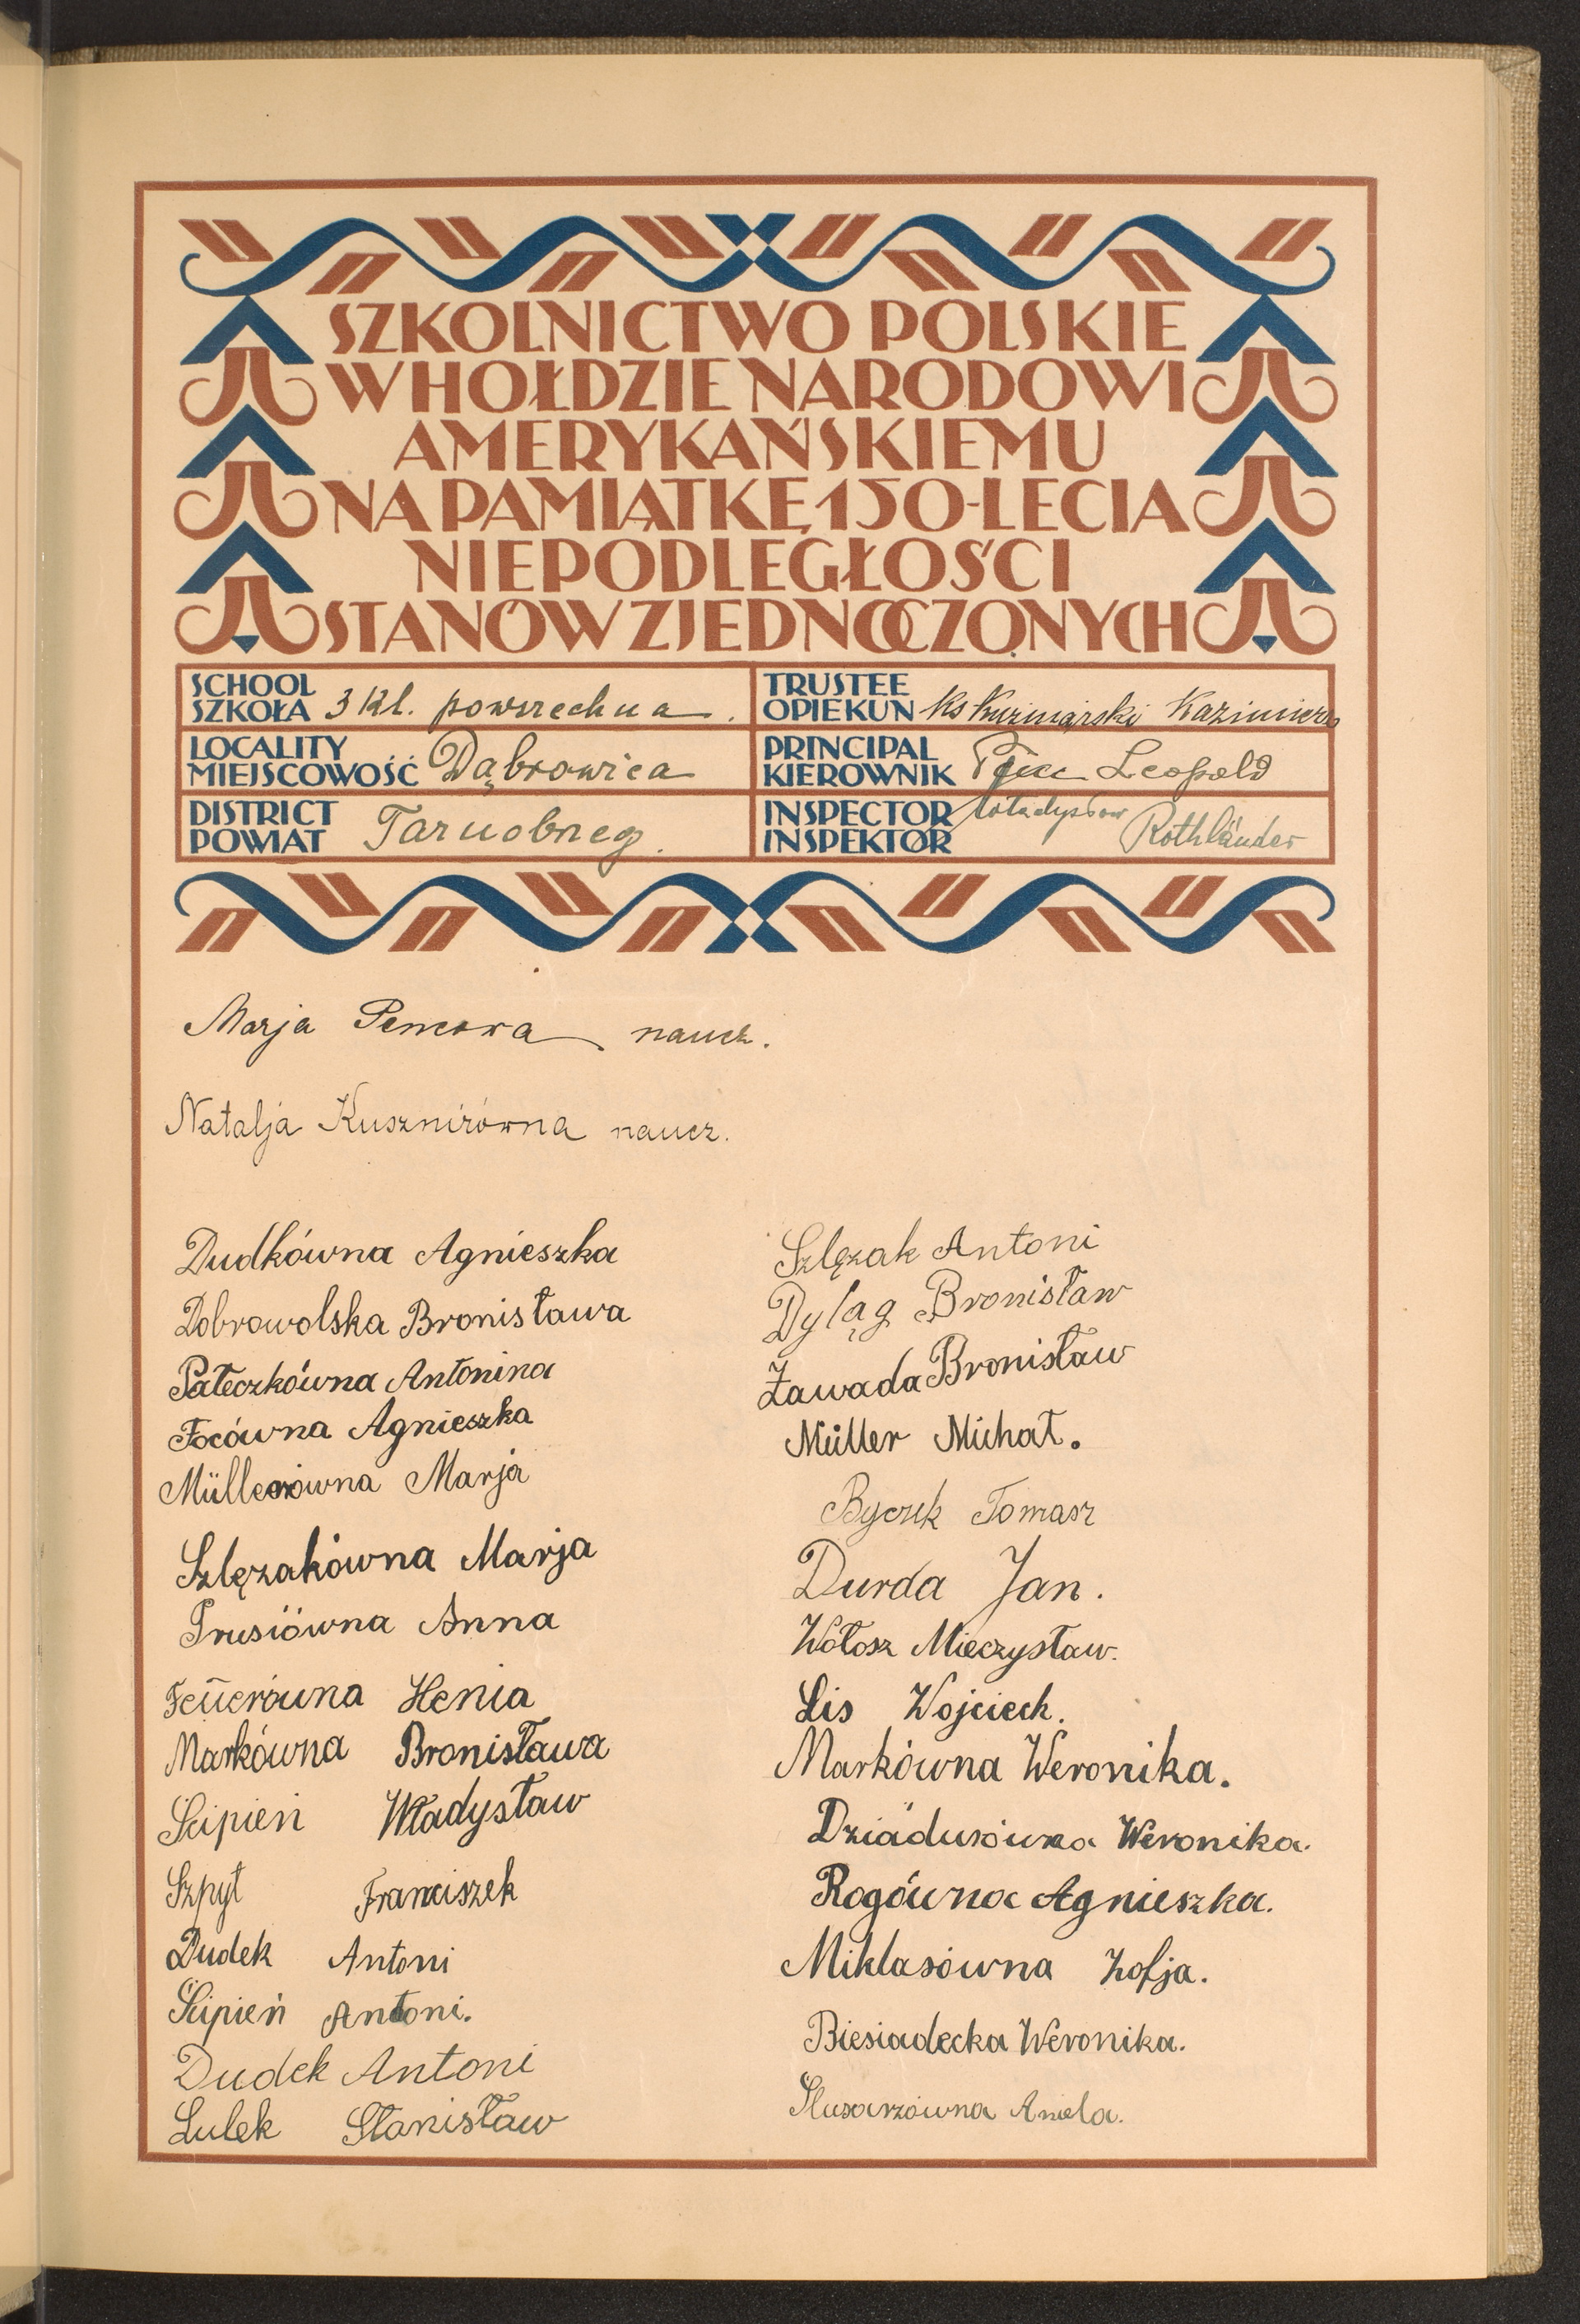 SZKOLNICTWO POLSKIE
W HOŁDZIE NARODOWI
AMERYKAŃSKIEMU
NA PAMIĄTKĘ 150-LECIA
NIEPODLEGŁOŚCI
STANÓW ZJEDNOCZONYCH
SCHOOL
SZKOŁA 3 kl. powszechna.
TRUSTEE
OPIEKUN Ks Kuźniarski Kazimierz
LOCALITY
MIEJSCOWOŚĆ Dąbrowica
PRINCIPAL
KIEROWNIK Leopold
DISTRICT
POWIAT Tarnobrzeg.
INSPECTOR
INSPEKTOR Władysław Rothländer
Marja naucz.
Natalja Kusznirówna naucz.
Dudkówna Agnieszka
Dobrowolska Bronisława
Pałeczkówna Antonina
Focówna Agnieszka
Müllerówna Marja
Szlęzakówna Marja
Prusiówna Anna
Feüerówna Henia
Markówna Bronisława
Ścipień Władysław
Szpyt Franciszek
Dudek Antoni
Ścipień Antoni.
Dudek Antoni
Lulek Stanisław
Szlęzak Antoni
Dyląg Bronisław
Zawada Bronisław
Müller Michał.
Byczek Tomasz
Durda Jan.
Wołosz Mieczysław.
Lis Wojciech.
Markówna Weronika.
Dziadusówna Weronika.
Rogówna Agnieszka.
Miklasówna Zofja.
Biesiadecka Weronika.
Ślusarzówna Aniela.